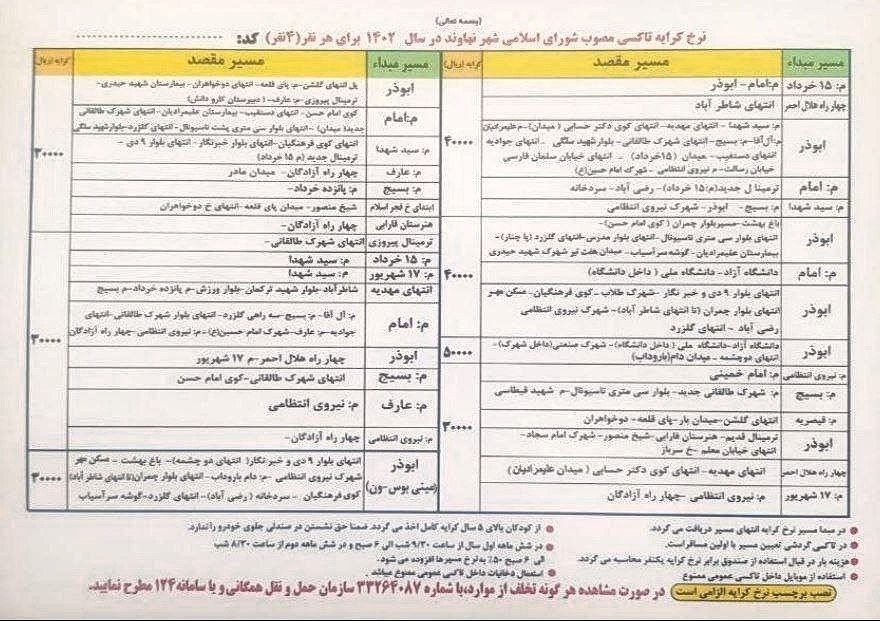 (بسمه تعالی)
نرخ کرایه تاکسی مصوب شورای اسلامی شهر نهاوند در سال ۱۴۰۲ برای هر نفر(۴نفر) کد:
مسیر مبداء مسیر مقصد کرایه (ریال)
م: ۱۵ خرداد م:امام- ابوذر
چهار راه هلال احمر انتهای شاطر آباد
ابوذر
م: سید شهدا - انتهای مهدیه- انتهای کوی دکتر حسابی (میدان)-م علیمرادیان
م:آل آقا-م: بسیج- انتهای شهرک طالقانی- بلوار شهید سلگی - انتهای جوادیه
انتهای دستغیب- میدان (۱۵خرداد) - انتهای خیابان سلمان فارسی
خیابان رسالت- م نیروی انتظامی - شهرک امام حسین(ع)
م: امام ترمینال جدید(م:۱۵ خرداد)- رضی آباد- سردخانه
م: سید شهدا م: بسیج - ابوذر- شهرک نیروی انتظامی
۴۰۰۰۰
ابوذر
باغ بهشت-مسیربلوار چمران (کوی امام حسن)-
انتهای بلوار سی متری تاسیوناال- انتهای بلوار مدرس-انتهای گلزرد (پا چنار)-
بیمارستان علیمرادیان- گوشه سرآسیاب- میدان هفت تیر شهرک شهید حیدری
م: امام دانشگاه آزاد- دانشگاه ملی (داخل دانشگاه)
ابوذر
انتهای بلوار ۹ دی و خبر نگار -شهرک طلاب -کوی فرهنگیان- مسکن مهر
انتهای بلوار چمران (تا انتهای شاطر آباد)- شهرک نیروی انتظامی
رضی آباد - انتهای گلزرد
۴۰۰۰۰
ابوذر
دانشگاه آزاد-دانشگاه ملی (داخل دانشگاه)- شهرک صنعتی(داخل شهرک)-
انتهای دوچشمه- میدان دام(باروداب)
۵۰۰۰۰
م: نیروی انتظامی م: امام خمینی
م: بسیج م: شهرک طالقانی جدید- بلوار سی متری تاسیوناال-م شهید قیطاسی
م: قیصریه انتهای گلشن-میدان بار-پای قلعه- دوخواهران
ابوذر
ترمینال قدیم- هنرستان فارابی-شیخ منصور- شهرک امام سجاد-
انتهای خیابان معلم -خ سرباز
چهار راه هلال احمر انتهای مهدیه- انتهای کوی دکتر حسابی (میدان علیمرادیان)
م: ۱۷ شهریور م: نیروی انتظامی -چهار راه آزادگان
۳۰۰۰۰
مسیر مبداء مسیر مقصد کرایه (ریال)
ابوذر
پل انتهای گلشن-م: پای قلعه- انتهای دوخواهران- بیمارستان شهید حیدری-
ترمینال پیروزی-م: عارف-(دبیرستان کارو دانش)
م:امام
کوی امام حسن- انتهای دستغیب- بیمارستان علیمرادیان- انتهای شهرک طالقانی
جدید(میدان)-انتهای بلوار سی متری پشت تاسیوناال- انتهای گلزرد-بلوارشهید سلگی
م: سید شهدا
انتهای کوی فرهنگیان-انتهای بلوار خبرنگار- انتهای بلوار ۹ دی-
ترمینال جدید (م ۱۵ خرداد)
م: عارف چهار راه آزادگان- میدان مادر
م: بسیج م: پانزده خرداد-
ابتدای خ فجر اسلام شیخ منصور- میدان پای قلعه-انتهای خ دوخواهران
هنرستان فارابی چهار راه آزادگان-
۳۰۰۰۰
ترمینال پیروزی انتهای شهرک طالقانی-
م: ۱۵ خرداد م: سید شهدا
م: ۱۷ شهریور م: سید شهدا
انتهای مهدیه شاطرآباد- بلوار شهید ترکمان-بلوار ورزش-م پانزده خرداد-م بسیج
م: امام
م: آل آقا-م: بسیج-سه راهی گلزرد- انتهای بلوار شهرک طالقانی-انتهای
جوادیه-م: عارف-شهرک امام حسین(ع)-م: نیروی انتظامی-چهار راه آزادگان
ابوذر چهار راه هلال احمر-م ۱۷ شهریور
م: بسیج انتهای شهرک طالقانی-کوی امام حسن
م: عارف م: نیروی انتظامی
م: نیروی انتظامی چهار راه آزادگان-
۳۰۰۰۰
ابوذر
(مینی بوس-ون)
انتهای بلوار ۹ دی و خبر نگار( انتهای دو چشمه)- باغ بهشت- مسکن مهر
شهرک نیروی انتظامی -م: دام باروداب- انتهای بلوار چمران(تا انتهای شاطر آباد)
کوی فرهنگیان - سردخانه (رضی آباد)- انتهای گلزرد-گوشه سرآسیاب
۳۰۰۰۰
در مبدا مسیر نرخ کرایه انتهای مسیر دریافت می گردد.
در تاکسی گردشی تعیین مسیر با اولین مسافر است.
هزینه بار در قبال استفاده از صندوق برابر نرخ کرایه یکنفر محاسبه می گردد.
استفاده از موبایل داخل تاکسی عمومی ممنوع
از کودکان بالای ۵ سال کرایه کامل اخذ می گردد. ضمنا حق نشستن در صندلی جلوی خودرو را ندارد.
در شش ماهه اول سال از ساعت ۹/۳۰ شب الی ۶ صبح و در شش ماهه دوم از ساعت ۸/۳۰ شب
الی ۶ صبح ۵۰٪ به نرخ مسیرها افزوده می شود.
استعمال دخانیات داخل تاکسی عمومی ممنوع میباشد
نصب برچسب نرخ کرایه الزامی است در صورت مشاهده هر گونه تخلف از موارد،با شماره ۳۳۲۶۴۰۸۷ سازمان حمل و نقل همگانی و یا سامانه۱۲۴ مطرح نمایید.